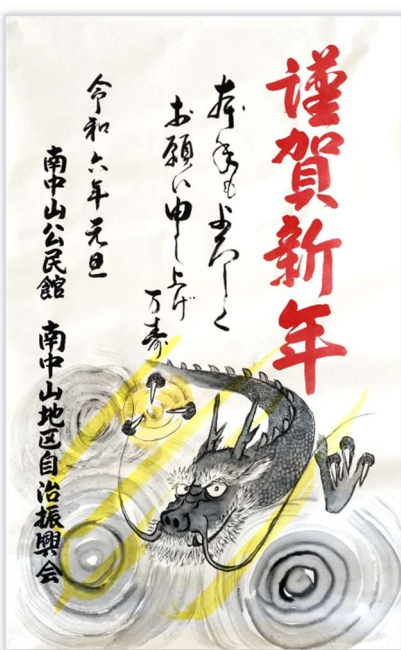 謹賀新年
本年もよろしく
お願い申し上げ
万寿
令和六年元旦
南中山公民館
南中山地区自治振興会